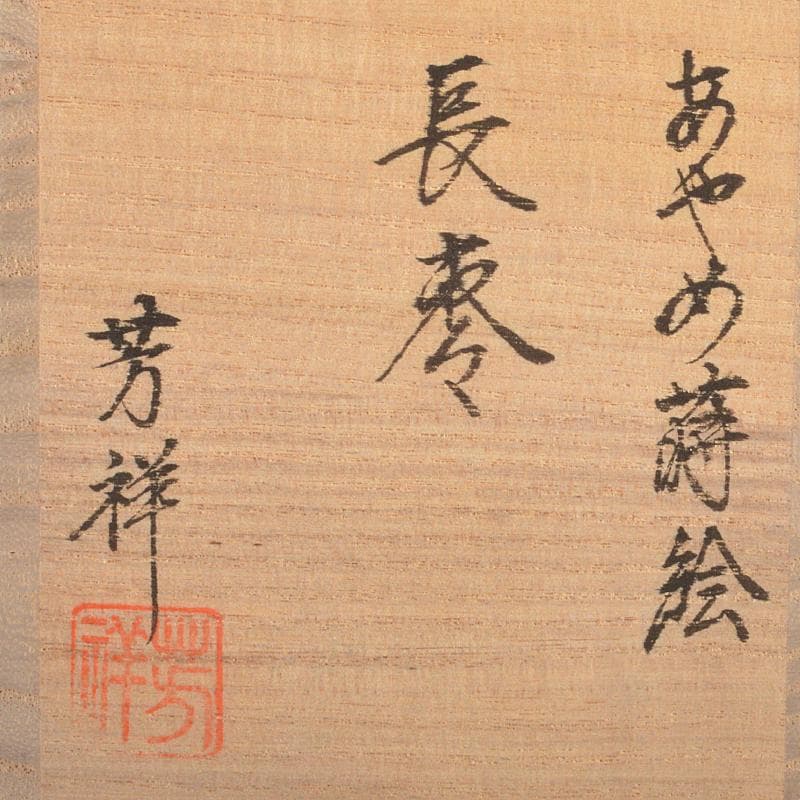 あやめ蒔絵
長棗
芳祥
芳祥